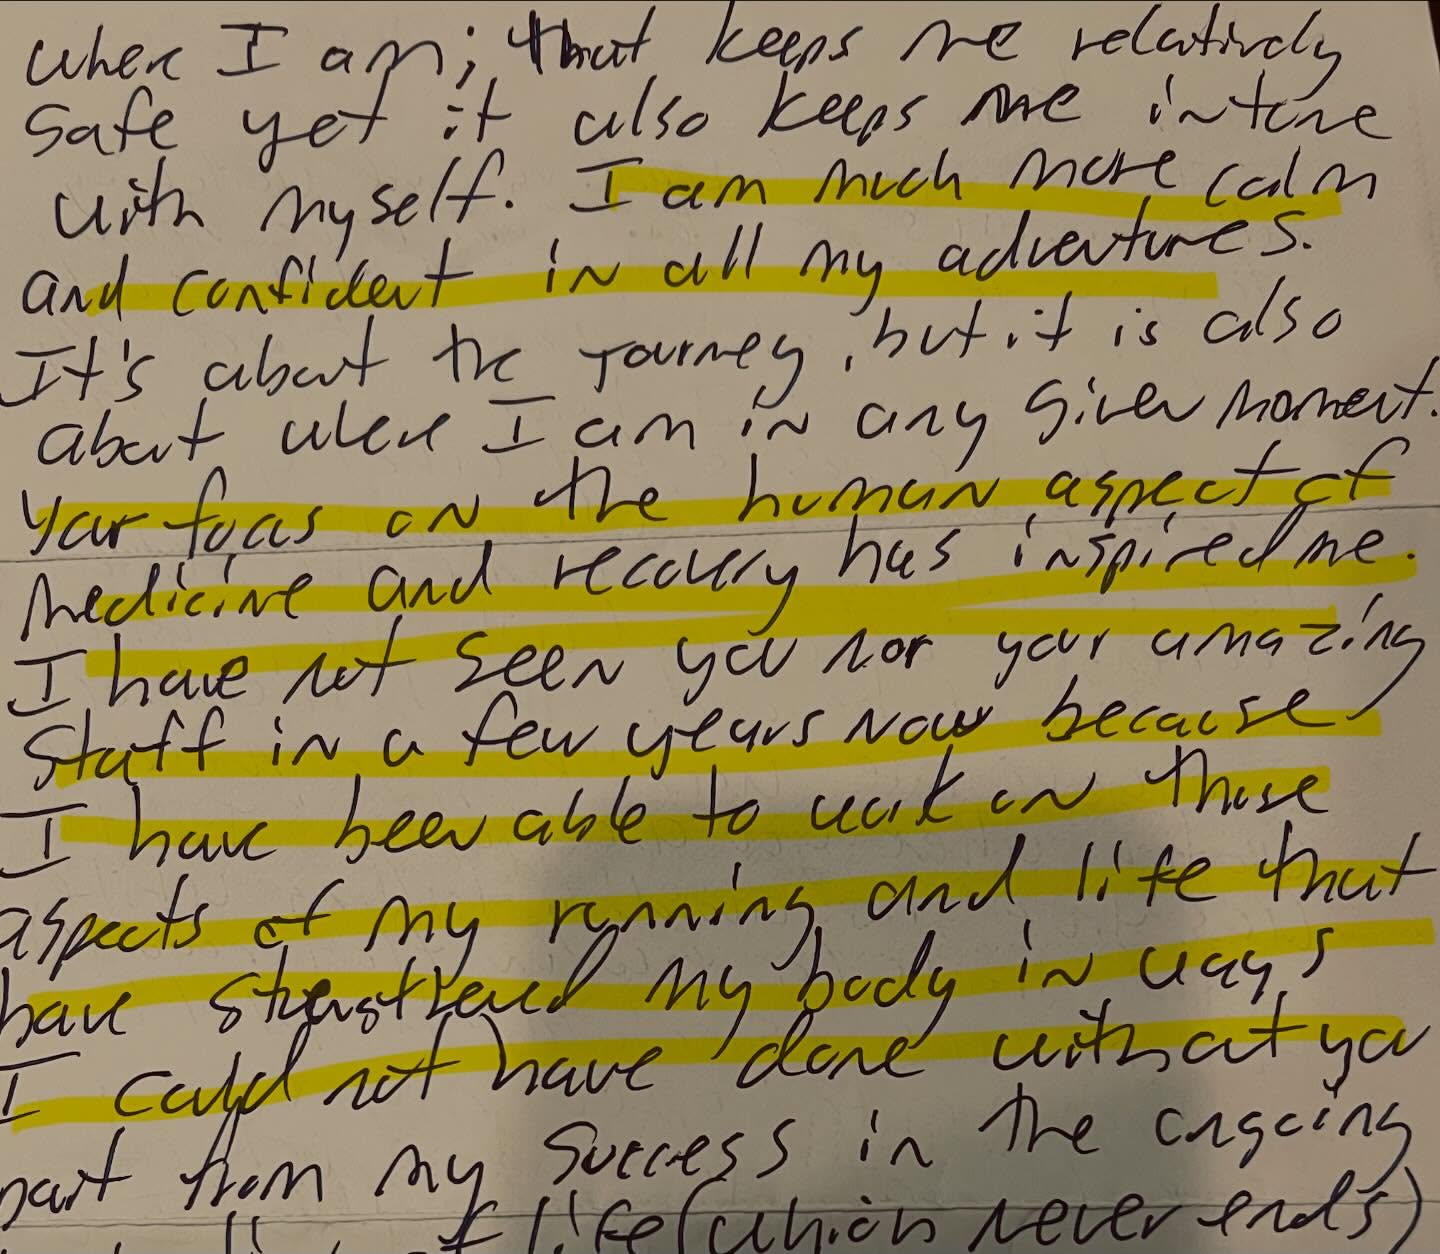 where I am; that keeps me relatively
safe yet it also keeps me intune
with myself. I am much more calm
and confident in all my adventures.
It's about the journey, but it is also
about where I am in any given moment.
Your focus on the human aspect of
medicine and recovery has inspired me.
I have not seen you nor your amazing
staff in a few years now because
I have been able to work on those
aspects of my running and life that
have strengthened my body in ways
I could not have done without you
part from my success in the ongoing
of life (which never ends)